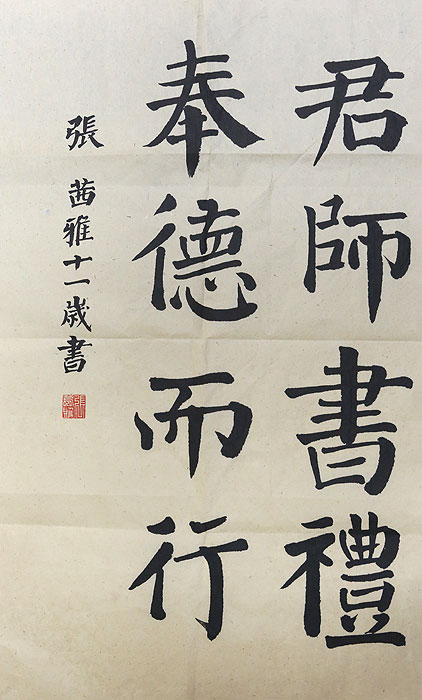 君師書禮
奉德而行
張茜雅十一歲書